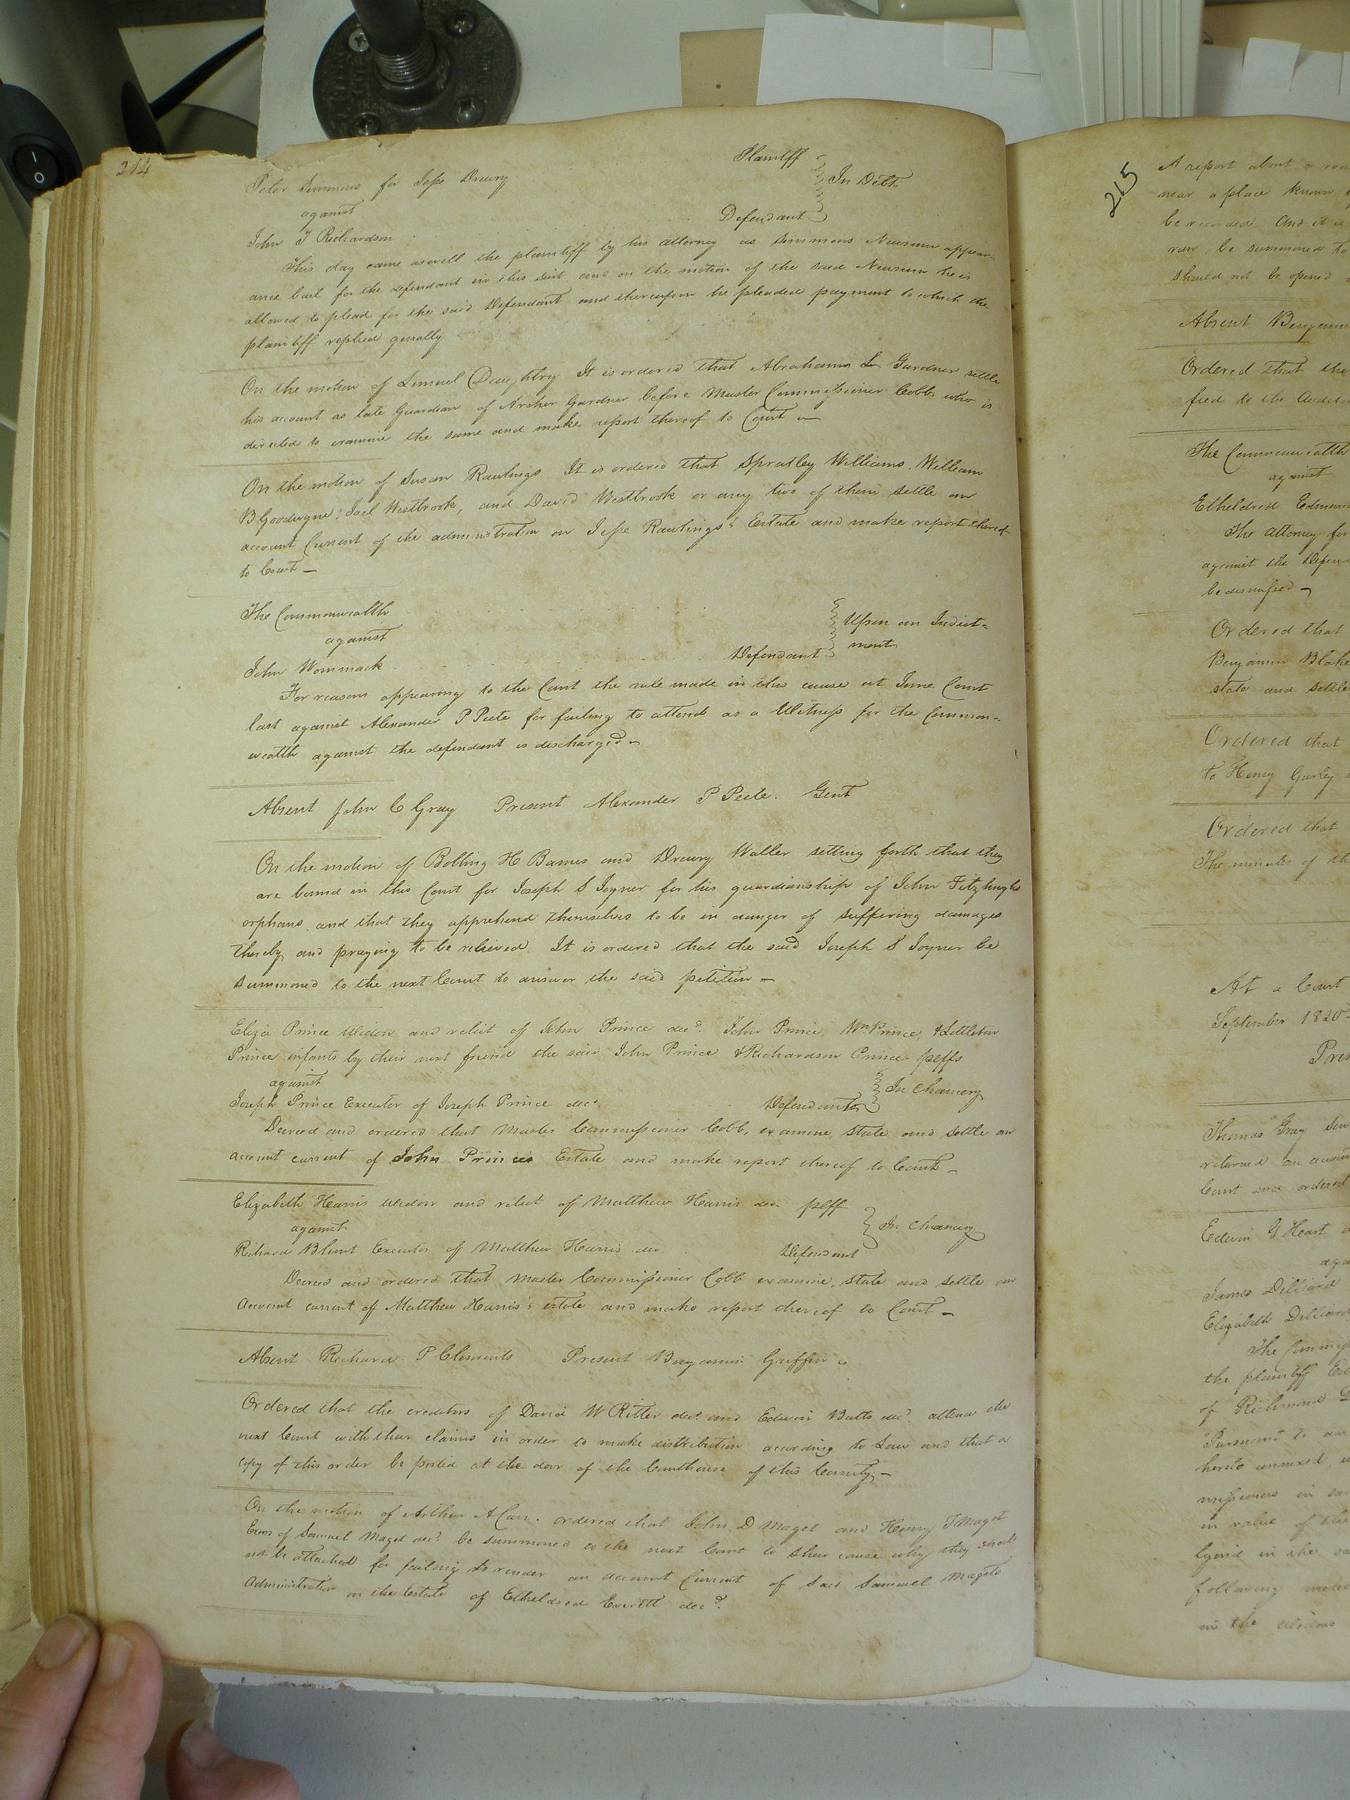 214
Peter Simmons for Jesse Drewry Plaintiff
against In Debt
John T Richardson Defendant
This day came aswell the plaintiff by his attorney as Simmons Newsum appear-
ance bail for the defendant in this suit and on the motion of the said Newsum he is
allowed to plead for the said Defendant and thereupon he pleaded payment to which the
plaintiff replied generally
On the motion of Lemuel Daughtry It is ordered that Abraham Gardner settle
his account as late Guardian of Archer Gardner before Master Commissioner Cobb who is
directed to examine the same and make report thereof to Court
On the motion of Susan Rawlings It is ordered that Spratley Williams, William
B Goodwyne, Joel Westbrook, and David Westbrook or any two of them settle an
account Current of the administration on Jesse Rawlings's Estate and make report thereof
to Court
The Commonwealth
against Upon an Indict-
ment
John Wommack Defendant
For reasons appearing to the Court the rule made in this cause at June Court
last against Alexander P Peete for failing to attend as a Witness for the Common-
wealth against the defendant is discharged
Absent John C Gray Present Alexander P Peete. Gent
On the motion of Bolling H Barnes and Drewry Waller setting forth that they
are bound in this Court for Joseph S Joyner for his guardianship of John Fitzhughs
orphans and that they apprehend themselves to be in danger of suffering damages
thereby and praying to be relieved It is ordered that the said Joseph S Joyner be
summoned to the next Court to answer the said petition
Eliza Prince widow and relict of John Prince decd. John Prince, Wm Prince, & Littleton
Prince infants by their next friend the said John Prince & Richardson Prince plffs
against In Chancery
Joseph Prince Executor of Joseph Prince dec. Defendants
Decreed and ordered that Master Commissioner Cobb, examine, state and settle an
account current of John Princes Estate and make report thereof to Court
Elizabeth Harris widow and relict of Matthew Harris dec plff
against In Chancery
Richard Blunt Executor of Matthew Harris dec. Defendant
Decreed and ordered that Master Commissioner Cobb examine, state and settle an
account current of Matthew Harris's estate and make report thereof to Court
Absent Richard P Clements Present Benjamin Griffin
Ordered that the creditors of David W Ritter decd and Edwin Butts decd. attend the
next Court with their claims in order to make distribution according to Law and that a
copy of this order be posted at the door of the Courthouse of this County
On the motion of Arthur A Carr. ordered that John D Maget and Henry T Maget
Exors of Samuel Maget decd. be summoned to the next Court to shew cause why they shall
not be attached for failing to render an account Current of said Samuel Magets
Administration on the Estate of Etheldred Everitt decd.
215
A report about a
near a place known
be recorded And it is
be summoned to
should not be opened
Absent Benjamin
Ordered that the
fied to the Auditor
The Commonwealth
against
Etheldred
The Attorney for
against the Defen
be dismissed
Ordered that
Benjamin
state and settle
Ordered that
to Henry Gurley
Ordered that
The minutes of th
At a Court
September 1820
Pres
Thomas Gray
returned an
Court and ordered
Edwin G Hart
aga
James Dilliard
Elizabeth Dilliard
The Commis
the plaintiff
of Richmond
Pursuant to an
hereto annexed,
missioners in
in value of the
lying in the
following
in the widows